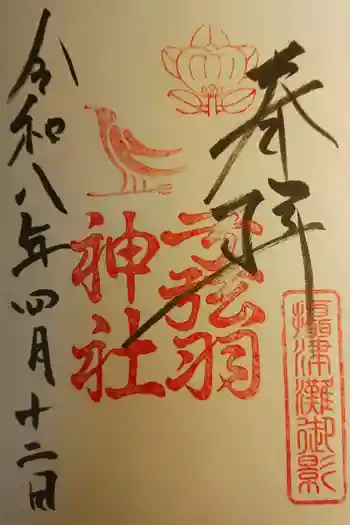 奉拝
摂津灘御影
弓弦羽
神社
令和八年四月十二日